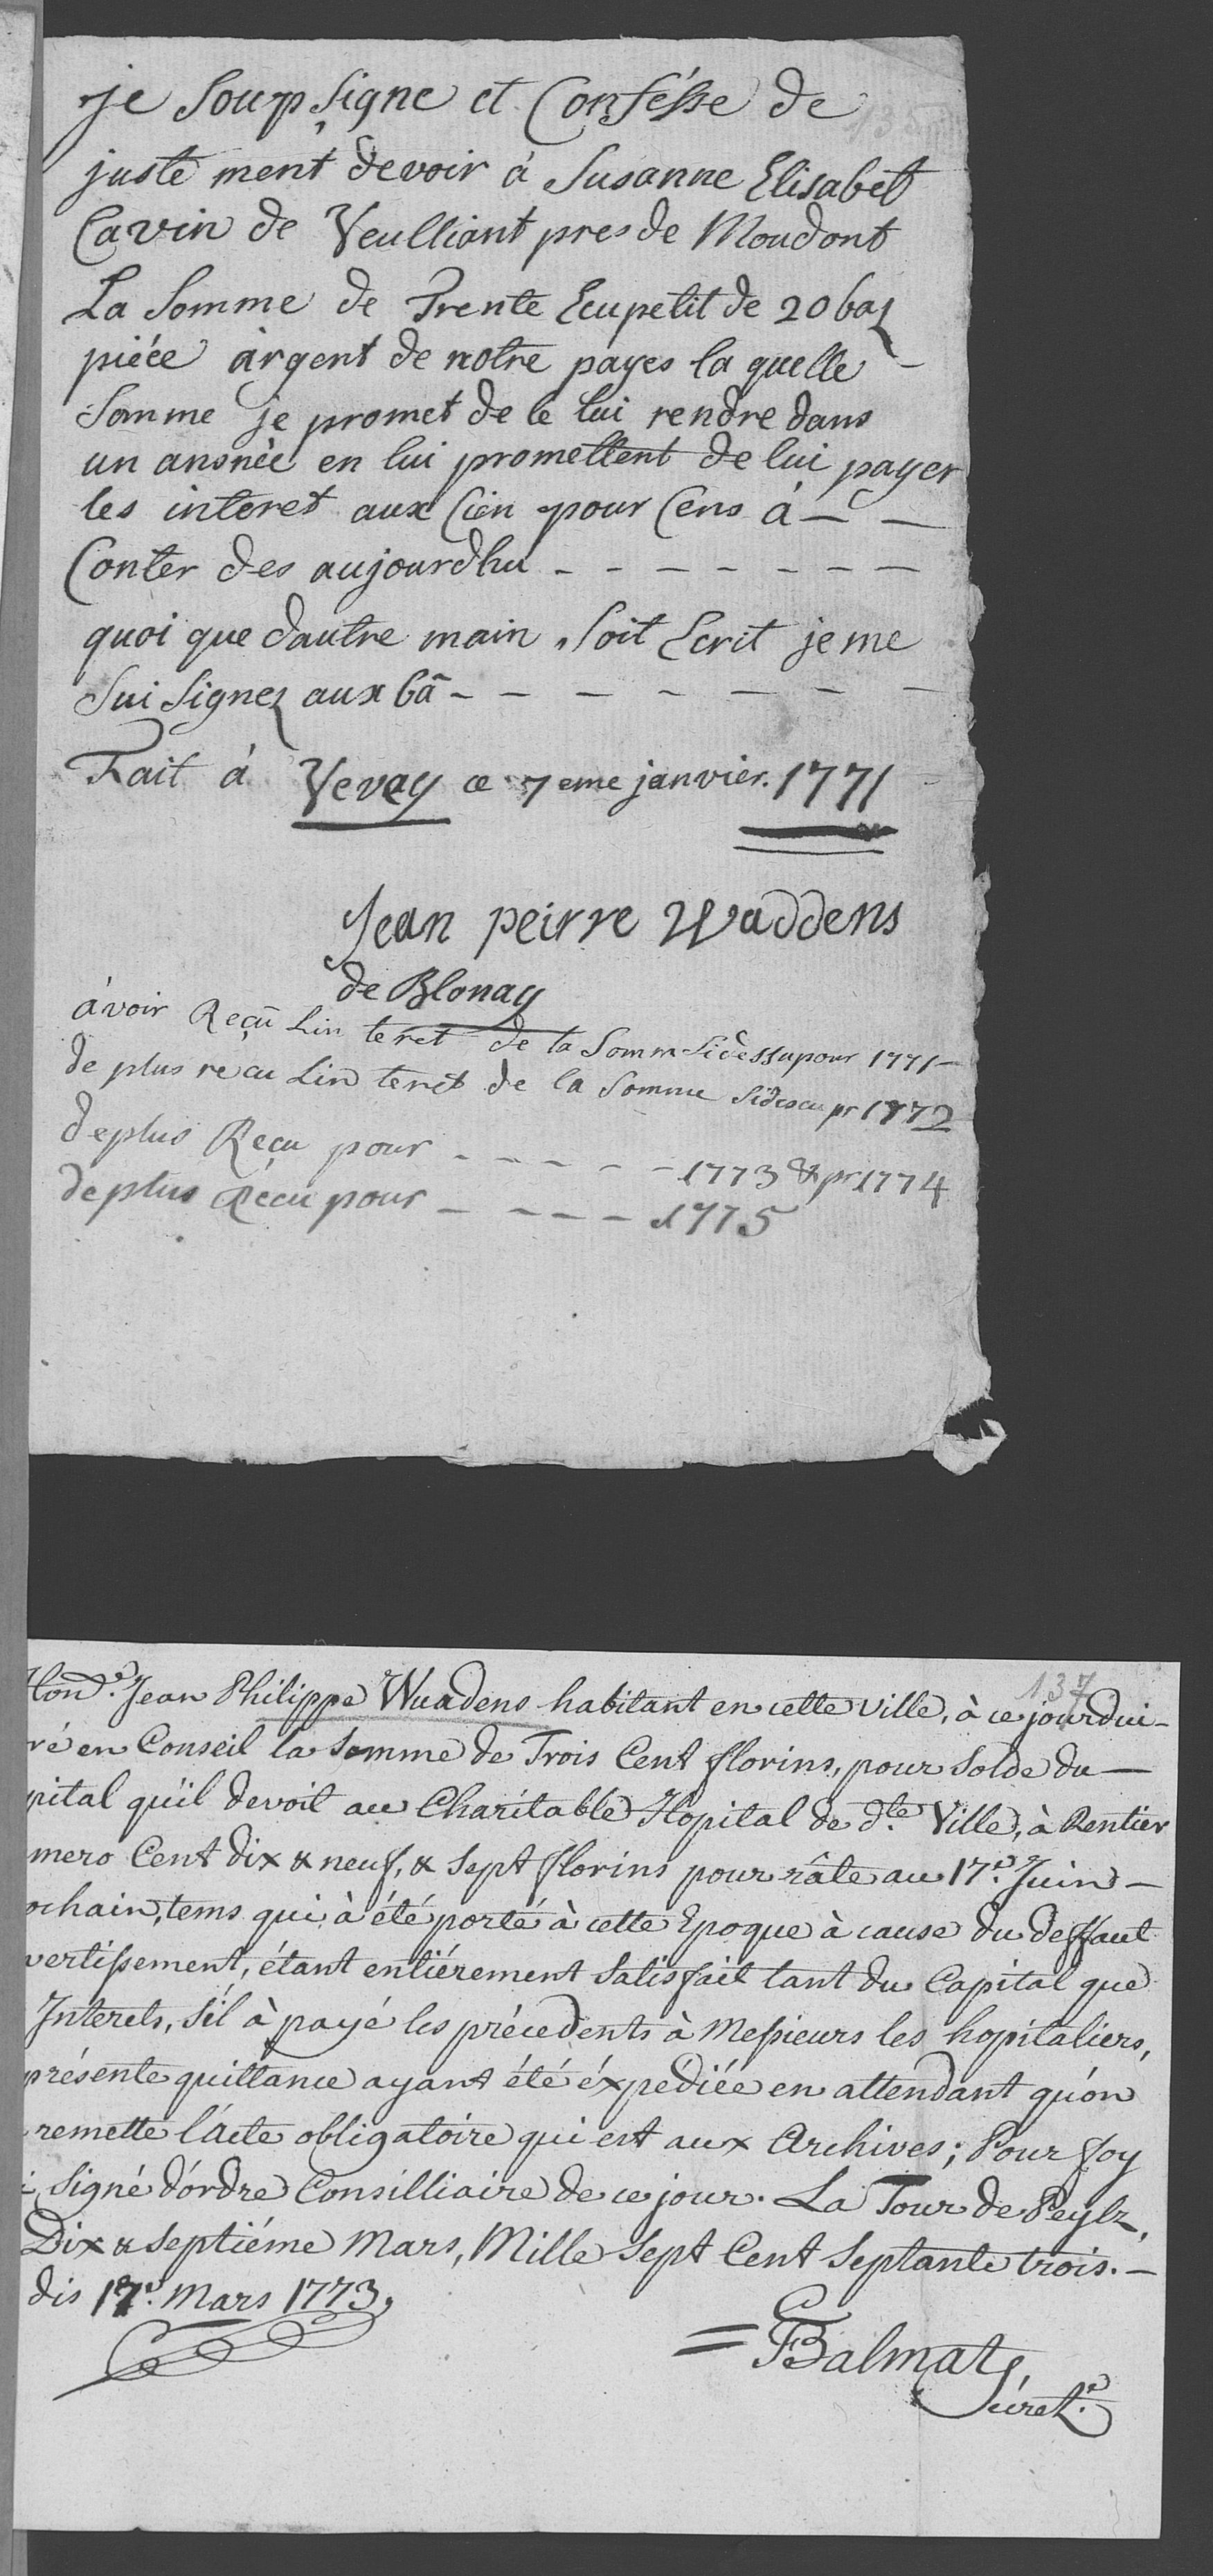 je Soupsigne et Confésse de
juste ment devoir à Susanne Elisabet
Cavin de Veulliant pres de Moudont
La Somme de Trente Ecu petit de 20 baz
piéce argent de notre payes la quelle
Somme je promet de le lui rendre dans
un ansnèe en lui promettent de lui payer
les interet aux Cien pour Cens à — —
Conter des aujourdhu - - - - - - - -
quoi que dautre main Soit Ecrit je me
Sui Signez aux bâ - - - - - - - -
Fait à Vevey ce 7eme janvier. 1771
Jean peirre Waddens
de Blonay
àvoir Reçû Lin teret de la Somm Sidessu pour 1771 —
de plus recu Lin teret de la Somme Sidescu pr 1772
deplus Reçu pour - - - - - - 1773 & pr 1774
deplus Recu pour - - - - - 1775
137
Hond.e Jean Philippe Wuadens habitant en cette Ville, à ce jourdui-
ré en Conseil la Somme de Trois Cent florins, pour Solde du —
pital qu'il devoit au Charitable Hopital de d.te Ville, à Rentier
mero Cent dix & neuf, & Sept florins pour râte au 17.e Juin —
ochain, tems qui à été porté à cette Epoque à cause du deffaut
vertissement, étant entiérement Satisfait tant du Capital que
Interets, s'il à payé les précedents à Messieurs les hopitaliers,
présente quittance ayant été éxpédiée en attendant qu'on
remette l'Acte obligatoire qui est aux Archives; Pour foy
Signé d'ordre Consilliaire de ce jour. La Tour de Peylz,
Dix & Septiéme Mars, Mille Sept Cent Septante trois. —
dis 17.e Mars 1773,
= Balmat,
Sécret.e